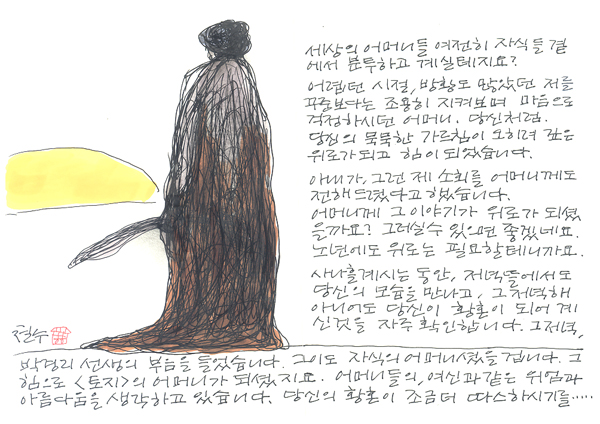 세상의 어머니들 여전히 자식들 곁
에서 분투하고 계실테지요?
어렵던 시절, 방황도 많았던 저를
꾸중보다는 조용히 지켜보며 마음으로
걱정하시던 어머니. 당신처럼.
당신의 묵묵한 가르침이 오히려 깊은
위로가 되고 힘이 되었습니다.
아내가, 그런 제 소회를 어머니께도
전해 드렸다고 했습니다.
어머니께 그 이야기가 위로가 되셨
을까요? 그러실수 있으면 좋겠네요.
노년에도 위로는 필요할테니까요.
사나흘 계시는 동안, 저녁뜰에서도
당신의 모습을 만나고, 그 저녁해
아니어도 당신이 황혼이 되어 계
신것을 자주 확인합니다. 그저녁,
박경리 선생의 부음을 들었습니다. 그이도 자식의 어머니셨을겁니다. 그
힘으로 <토지>의 어머니가 되셨지요. 어머니들의, 여신과 같은 위엄과
아름다움을 생각하고 있습니다. 당신의 황혼이 조금더 따스하시기를·····
철수